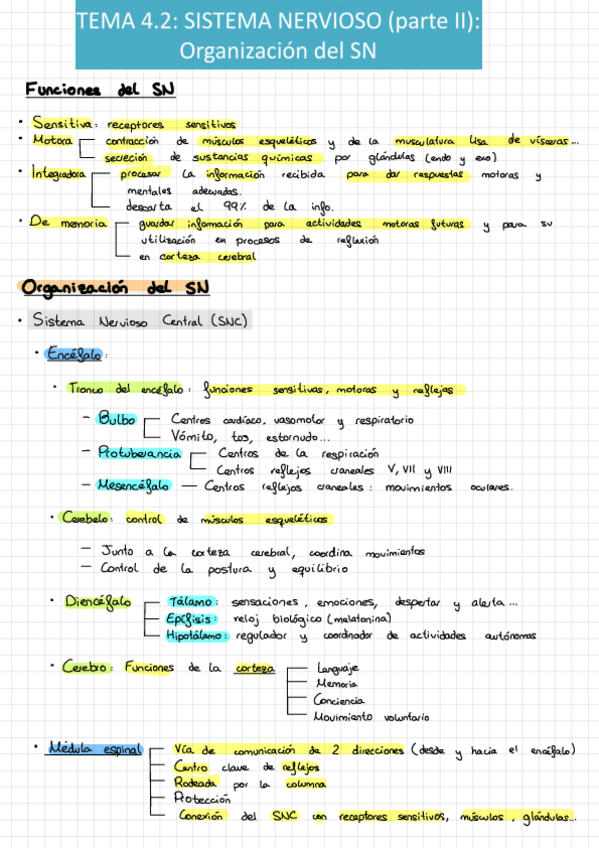 TEMA 4.2: SISTEMA NERVIOSO (parte II):
Organización del SN
Funciones del SN
• Sensitiva: receptores sensitivos
• Motora contracción de músculos esqueléticos y de la musculatura lisa de vísceras...
secreción de sustancias químicas por glándulas (endo y exo)
• Integradora procesar la información recibida para dar respuestas motoras y
mentales adecuadas.
descarta el 99% de la info.
• De memoria guardar información para actividades motoras futuras y para su
utilización en procesos de reflexión
en corteza cerebral
Organización del SN
• Sistema Nervioso Central (SNC)
• Encéfalo:
• Tronco del encéfalo: funciones sensitivas, motoras y reflejas
- Bulbo Centros cardíaco, vasomotor y respiratorio
Vómito, tos, estornudo...
- Protuberancia Centros de la respiración
Centros reflejos craneales V, VII y VIII
- Mesencéfalo - Centros reflejos craneales: movimientos oculares.
• Cerebelo: control de músculos esqueléticos
- Junto a la corteza cerebral, coordina movimientos
- Control de la postura y equilibrio
• Diencéfalo Tálamo: sensaciones, emociones, despertar y alerta...
Epífisis: reloj biológico (melatonina)
Hipotálamo: regulador y coordinador de actividades autónomas
• Cerebro: Funciones de la corteza Lenguaje
Memoria
Conciencia
Movimiento voluntario
• Médula espinal Vía de comunicación de 2 direcciones (desde y hacia el encéfalo)
Centro clave de reflejos
Rodeada por la columna
Protección
Conexión del SNC con receptores sensitivos, músculos, glándulas...